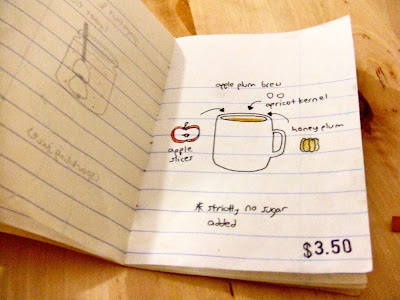 apple plum brew
apricot kernel
honey plum
apple
slices
* strictly no sugar
added
$3.50